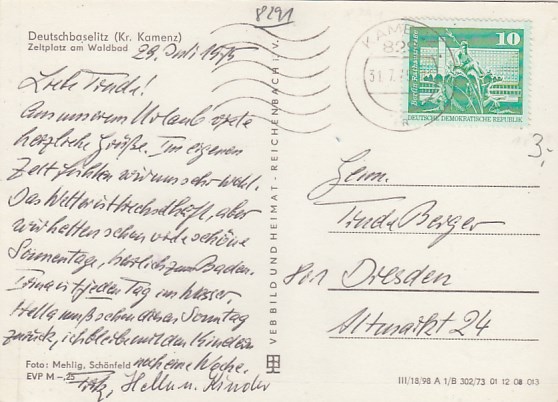 8291
Deutschbaselitz (Kr. Kamenz)
Zeltplatz am Waldbad
29. Juli 1975
Liebe Trude!
Aus unserem Urlaub
herzliche Grüße. Im eigenen
Zelt fühlen wir uns sehr wohl.
Das Wetter ist wechselhaft, aber
wir hatten schon viele schöne
Sonnentage, herrlich zum Baden.
Irina ist jeden Tag im Wasser.
Hella muß schon diesen Sonntag
zurück, ich bleibe mit den Kindern
noch eine Woche.
Fritz, Hella u. Kinder
Foto: Mehlig, Schönfeld
EVP M –,25
VEB BILD UND HEIMAT · REICHENBACH i. V.
KAMENZ
31.7.
10
DEUTSCHE DEMOKRATISCHE REPUBLIK
3,-
Trude Berger
801 Dresden
Altmarkt 24
III/18/98 A 1/B 302/73 01 12 08 013